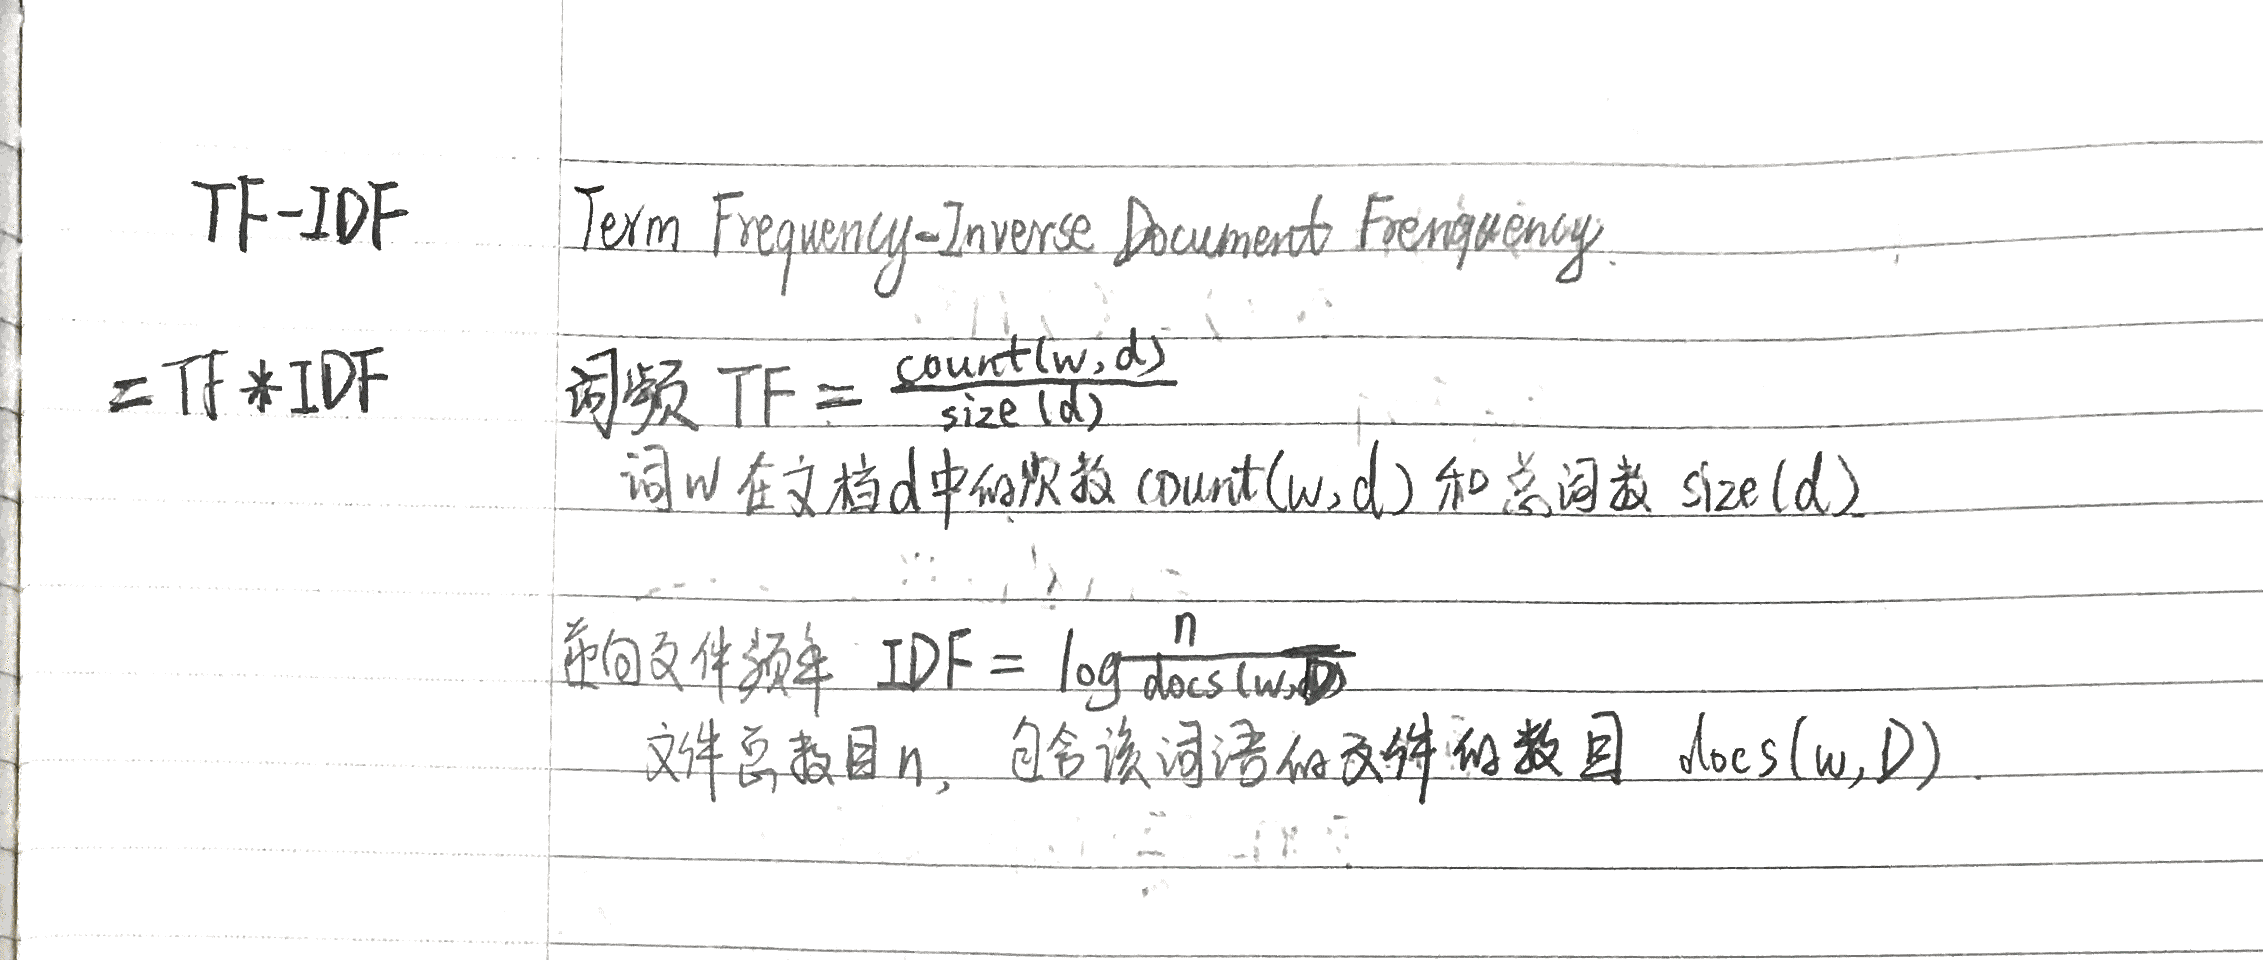 TF-IDF Term Frequency-Inverse Document Frenquency.
=TF*IDF 词频 TF = count(w,d) / size(d)
词w在文档d中的次数 count(w,d) 和总词数 size(d)
逆向文件频率 IDF = log n / docs(w,D)
文件总数目n, 包含该词语的文件的数目 docs(w,D).